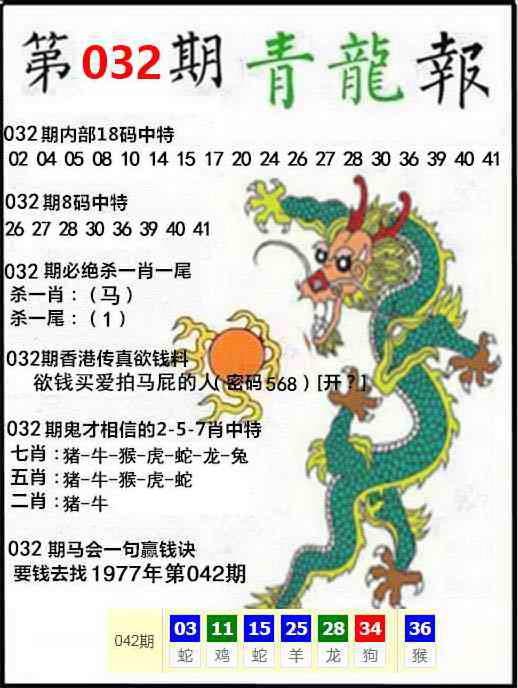 第032期青龍報
032期内部18码中特
02 04 05 08 10 14 15 17 20 24 26 27 28 30 36 39 40 41
032期8码中特
26 27 28 30 36 39 40 41
032 期必绝杀一肖一尾
杀一肖：（马）
杀一尾：（1）
032期香港传真欲钱料
欲钱买爱拍马屁的人（密码568）[开？]
032期鬼才相信的2-5-7肖中特
七肖：猪-牛-猴-虎-蛇-龙-兔
五肖：猪-牛-猴-虎-蛇
二肖：猪-牛
032 期马会一句赢钱诀
要钱去找1977年第042期
042期 03 11 15 25 28 34 36
蛇 鸡 蛇 羊 龙 狗 猴